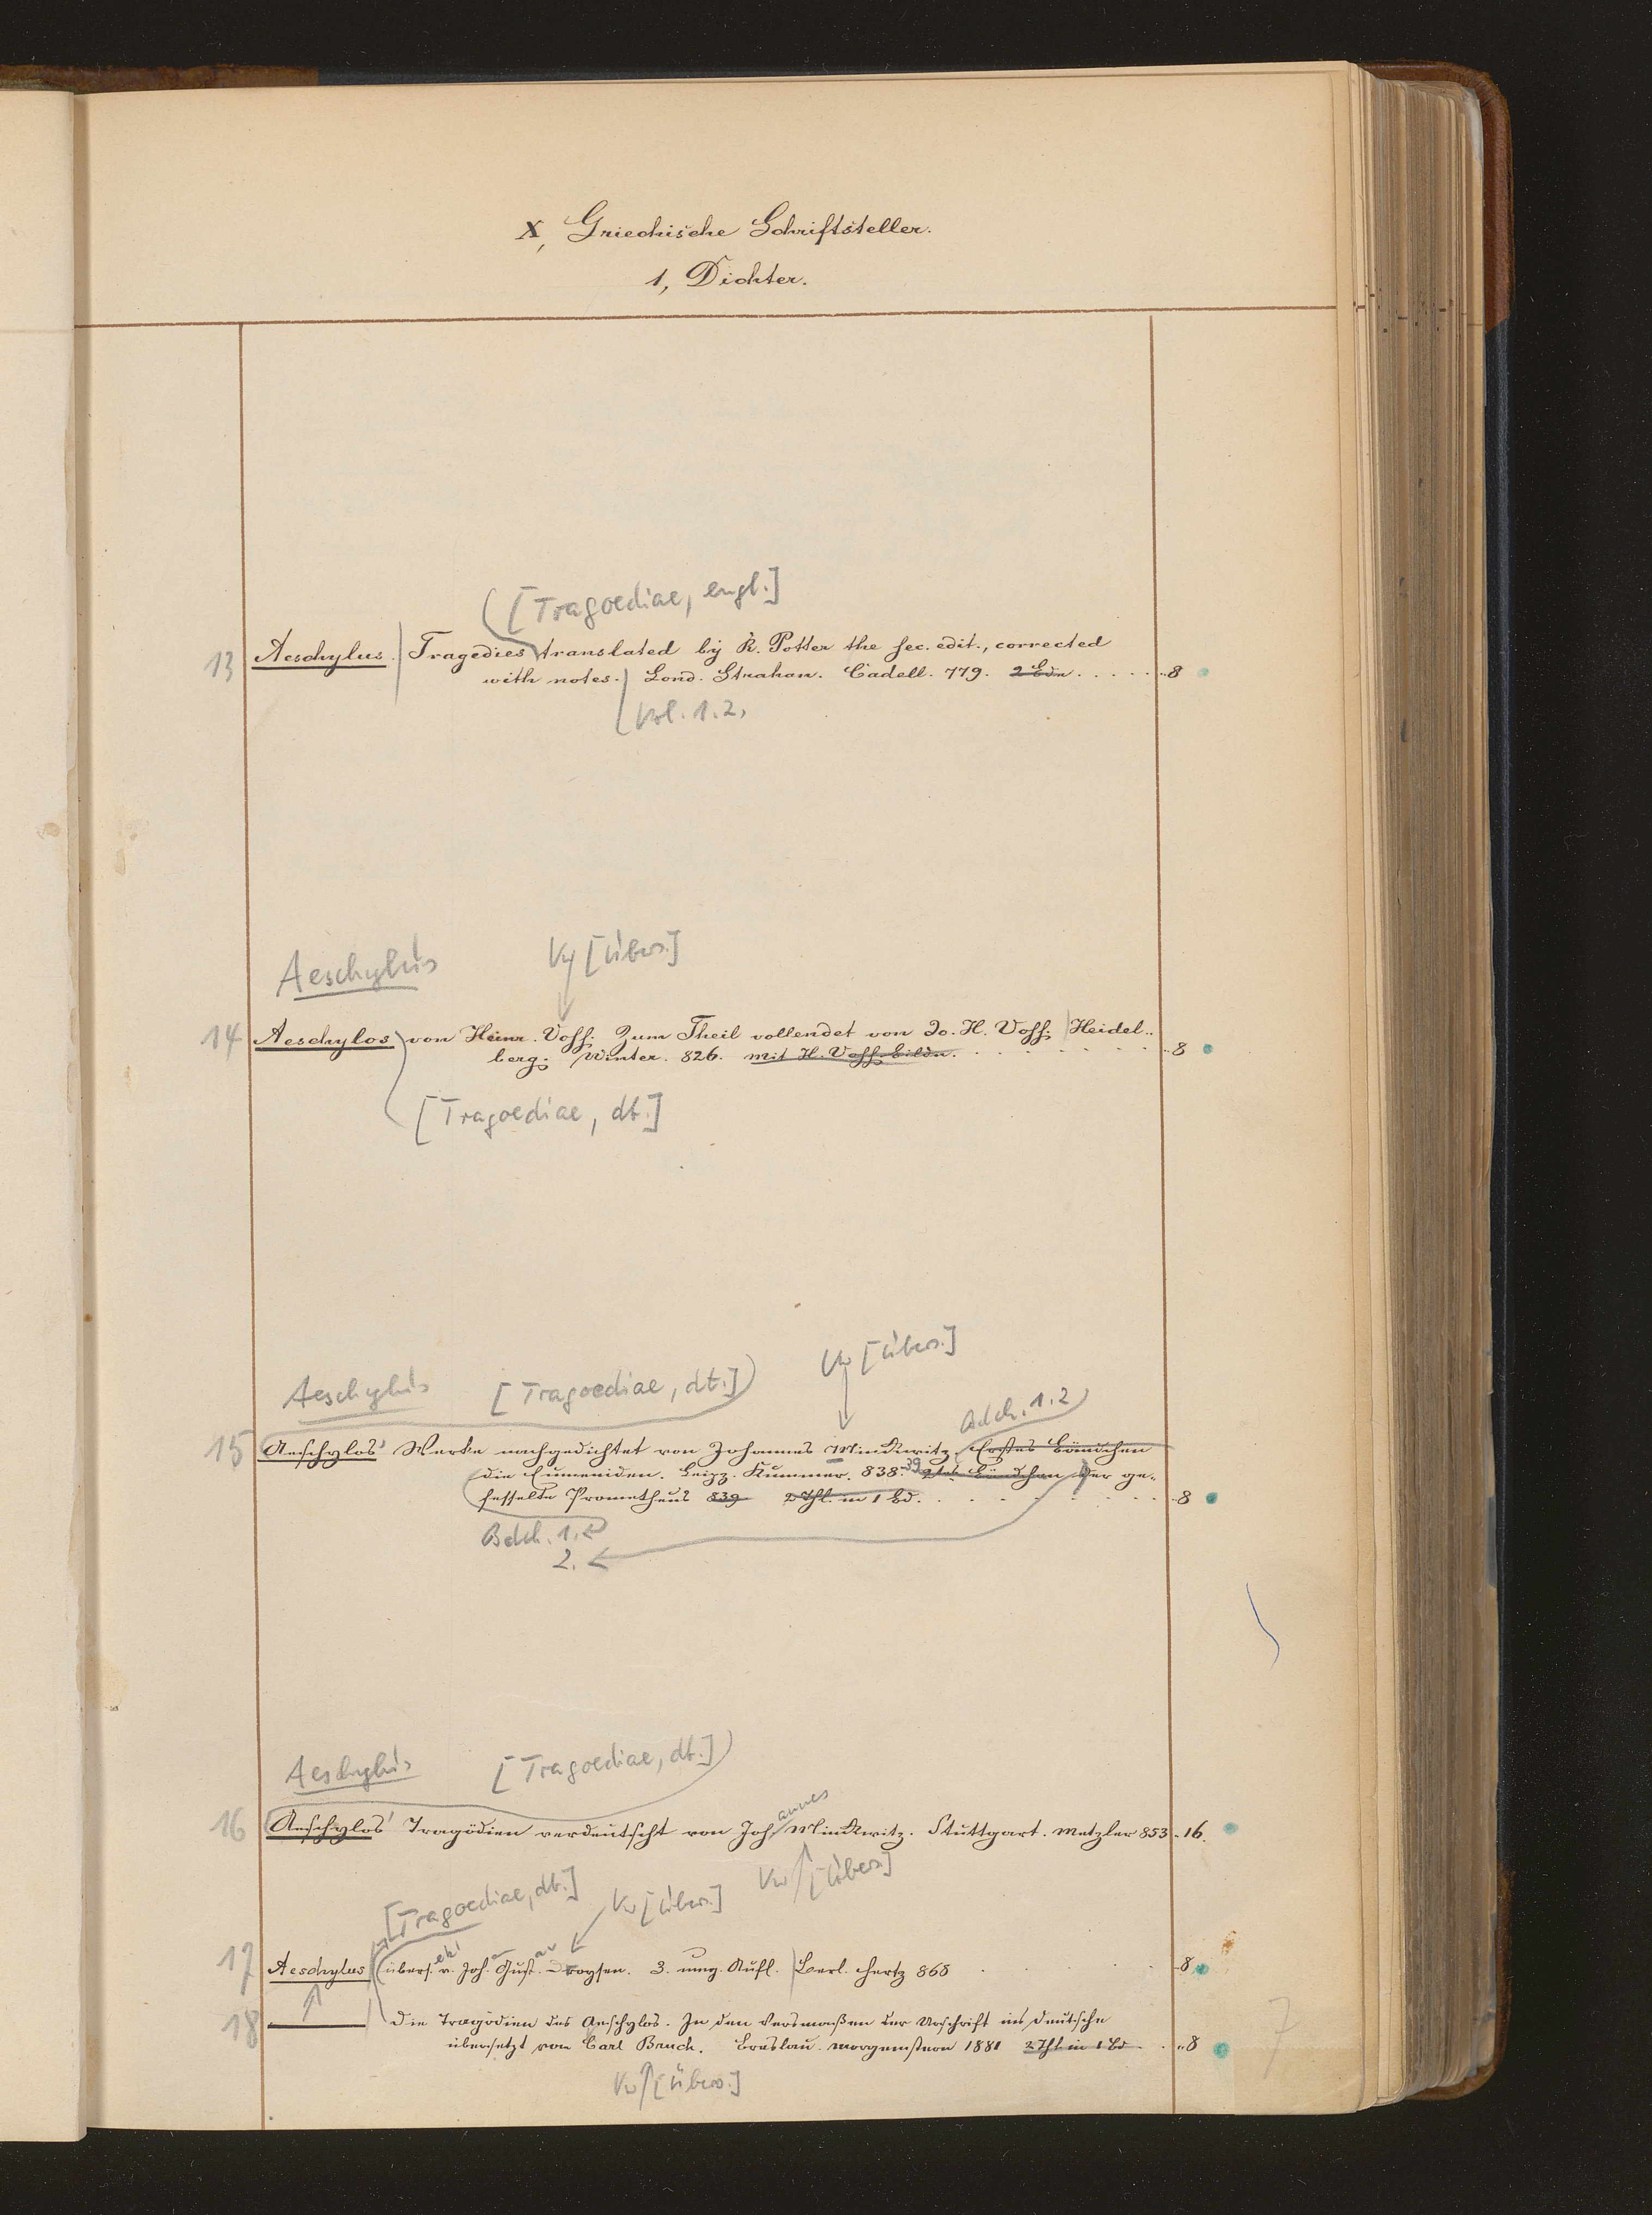 X, Griechische Schriftsteller.
1, Dichter.
[Tragoediae, engl.]
13 Aeschylus. Tragedies translated by R. Potter the sec. edit., corrected
with notes. Lond. Strahan. Cadell. 779. 2 Bdn. .. 8
Vol. 1.2,
Aeschylus Vw [Übers.]
14 Aeschylos von Heinr. Voss. Zum Theil vollendet von Jo. H. Voss. Heidel..
berg. Winter. 826. mit H. Voss. Bildn. .. 8
[Tragoediae, dt.]
Vw [Übers.]
Aeschylus [Tragoediae, dt.]
Bdch. 1.2
15 Aeschylos' Werke nachgedichtet von Johannes Minckwitz. Erstes Bändchen
die Eumeniden. Leipz. Kummer. 838.-39 2tes Bändchen der ge-
fesselte Prometheus 839 2 Thl. in 1 Bd. .. 8
Bdch. 1.
2.
Aeschylus [Tragoediae, dt.]
16 Aeschylos' Tragödien verdeutscht von Johannes Minckwitz. Stuttgart. Metzler 853. 16.
Vw [Übers.]
[Tragoediae, dt.] Vw [Übers.]
17 Aeschylus übers. v. Joh. Gust. Droysen. 3. umg. Aufl. Berl. Hertz 868 .. 8
18 die Tragödien des Aeschylos. In den Versmaßen der Urschrift ins Deutsche
übersetzt von Carl Bruch. Breslau. Morgenstern 1881 2 Thl in 1 Bd. .. 8
Vw [Übers.]
7